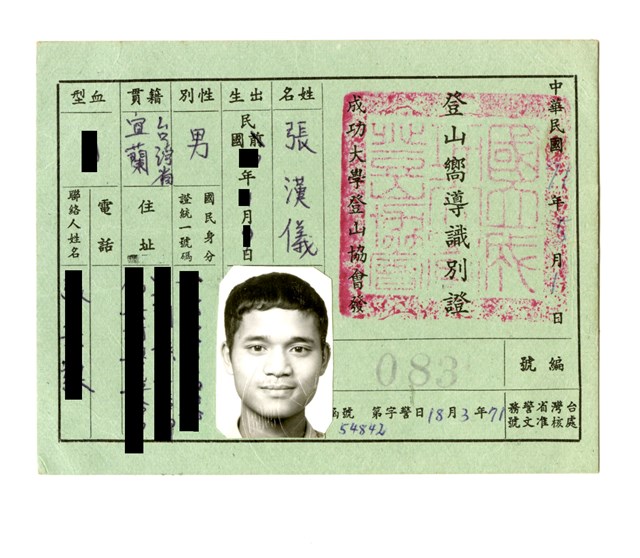 中華民國 年 月 日
登山嚮導識別證
成功大學登山協會發
編號
083
台灣省警務處核准文號
71年3月18日警字第 號函
54842
姓名
張漢儀
出生
民國 年 月 日
性別
男
國民身分證統一號碼
籍貫
台灣省
宜蘭
住址
血型
電話
聯絡人姓名